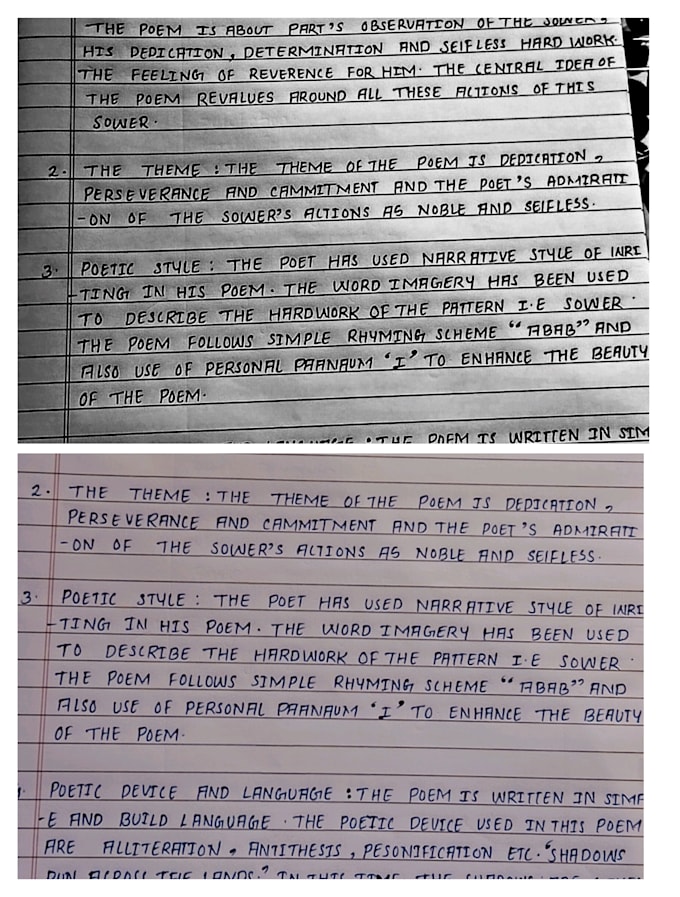 THE POEM IS ABOUT PART'S OBSERVATION OF THE SOWER,
HIS DEDICATION, DETERMINATION AND SEIFLESS HARD WORK.
THE FEELING OF REVERENCE FOR HIM. THE CENTRAL IDEA OF
THE POEM REVALUES AROUND ALL THESE ACTIONS OF THIS
SOWER.
2. THE THEME : THE THEME OF THE POEM IS DEDICATION,
PERSEVERANCE AND CAMMITMENT AND THE POET'S ADMIRATI
-ON OF THE SOWER'S ACTIONS AS NOBLE AND SEIFLESS.
3. POETIC STYLE : THE POET HAS USED NARRATIVE STYLE OF WRI
-TING IN HIS POEM. THE WORD IMAGERY HAS BEEN USED
TO DESCRIBE THE HARDWORK OF THE PATTERN I.E SOWER.
THE POEM FOLLOWS SIMPLE RHYMING SCHEME "ABAB" AND
ALSO USE OF PERSONAL PAANAUM 'I' TO ENHANCE THE BEAUTY
OF THE POEM.
: THE POEM IS WRITTEN IN SIM
2. THE THEME : THE THEME OF THE POEM IS DEDICATION,
PERSEVERANCE AND CAMMITMENT AND THE POET'S ADMIRATI
-ON OF THE SOWER'S ACTIONS AS NOBLE AND SEIFLESS.
3. POETIC STYLE : THE POET HAS USED NARRATIVE STYLE OF WRI
-TING IN HIS POEM. THE WORD IMAGERY HAS BEEN USED
TO DESCRIBE THE HARDWORK OF THE PATTERN I.E SOWER.
THE POEM FOLLOWS SIMPLE RHYMING SCHEME "ABAB" AND
ALSO USE OF PERSONAL PAANAUM 'I' TO ENHANCE THE BEAUTY
OF THE POEM.
POETIC DEVICE AND LANGUAGE : THE POEM IS WRITTEN IN SIMP
-E AND BUILD LANGUAGE. THE POETIC DEVICE USED IN THIS POEM
ARE ALLITERATION, ANTITHESIS, PESONIFICATION ETC. "SHADOWS
RUN ACROSS THE LANDS." IN THIS TIME THE SHADOWS ARE